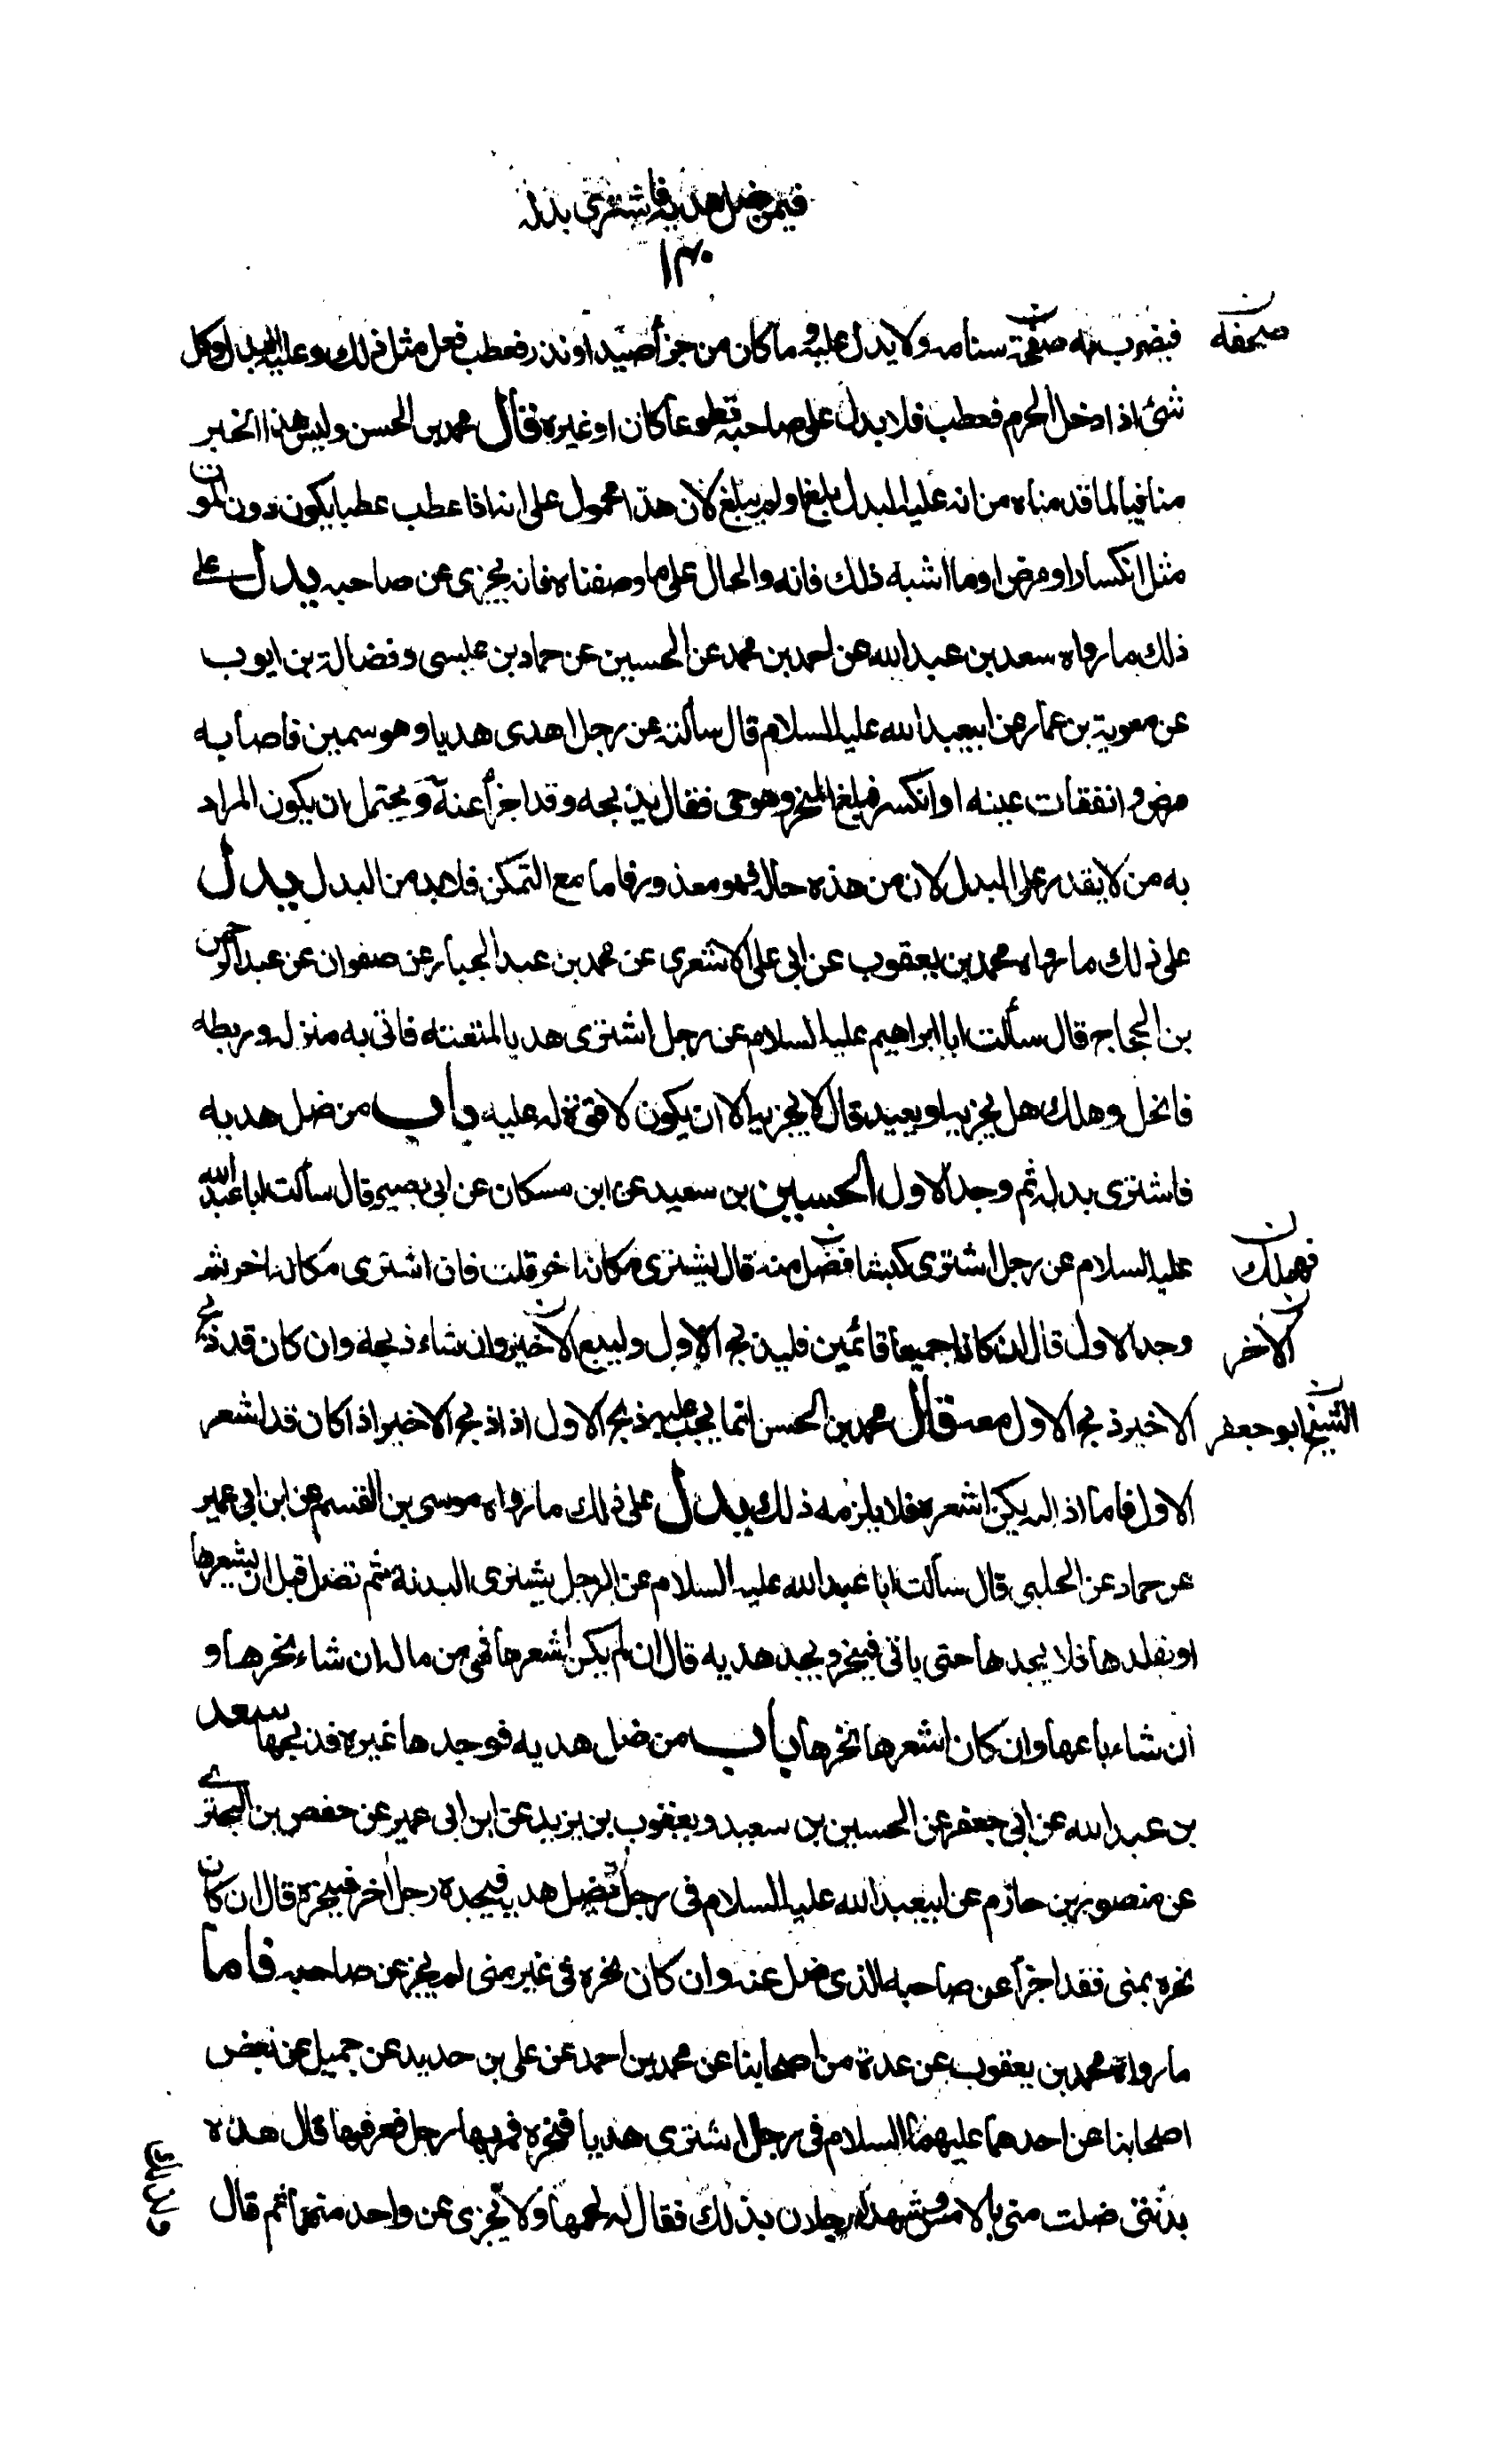 فيمن ضل هديه فاشترى بدله
١٣٠
فيضرب به صفحة سنامه ولا بدل عليه وما كان من جزأ صيد او نذر فعطب فعل مثل ذلك وعليه البدل وكل
صحيفه
شئ اذا دخل الحرم فعطب فلا بدل على صاحبه تطوعا كان او غيره فقال محمد بن الحسن وليس هذا الخبر
منافيا لما قدمناه من انه عليه البدل بلغ او لم يبلغ لان هذا محمول على انه اذا عطب عطبا يكون دون الموت
مثل انكسار او مرض او ما اشبه ذلك فانه والحال على ما وصفناه فانه يجزى عن صاحبه يدل على
ذلك ما رواه سعد بن عبدالله عن احمد بن محمد عن الحسين عن حماد بن عيسى وفضالة بن ايوب
عن معوية بن عمار عن ابيعبدالله عليه السلام قال سألته عن رجل اهدى هديا وهو سمين فاصابه
مرض وانفقات عينه او انكسر فبلغ المنحر وهو حى فقال يذبحه وقد اجزأ عنه ويحتمل ان يكون المراد
به من لا يقدر على البدل لان من هذه حاله فهو معذور فاما مع التمكن فلا بد من البدل يدل
على ذلك ما رواه محمد بن يعقوب عن ابى على الاشعرى عن محمد بن عبد الجبار عن صفوان عن عبد الرحمن
بن الحجاج قال سألت ابا ابراهيم عليه السلام عن رجل اشترى هديا لمتعته فاتى به منزله وربطه
فانحل وهلك هل يجزيه او يعيد قال لا يجزيه الا ان يكون لا قوة له عليه باب من ضل هديه
فاشترى بدله ثم وجد الاول الحسين بن سعيد عن ابن مسكان عن ابى بصير قال سألت ابا عبدالله
عليه السلام عن رجل اشترى كبشا فضل منه قال يشترى مكانه اخر قلت فان اشترى مكانه اخر ثم
فهلك
وجد الاول قال ان كانا جميعا قائمين فليذبح الاول وليبع الاخير وان شاء ذبحه وان كان قد ذبح
الاخر
الاخير ذبح الاول معه قال محمد بن الحسن انما يجب عليه ذبح الاول اذا ذبح الاخير اذا كان قد اشعر
الشيخ ابو جعفر
الاول فاما اذا لم يكن اشعره فلا يلزمه ذلك يدل على ذلك ما رواه موسى بن القسم عن ابن ابى عمير
عن حماد عن الحلبى قال سألت ابا عبد الله عليه السلام عن الرجل يشترى البدنة ثم تضل قبل ان يشعرها
او يقلدها فلا يجدها حتى ياتى فينحر ويجد هديه قال ان لم يكن اشعرها فهى من ماله ان شاء نحرها و
ان شاء باعها وان كان اشعرها نحرها باب من ضل هديه فوجدها غيره فذبحها سعد
بن عبد الله عن ابى جعفر عن الحسين بن سعيد ويعقوب بن يزيد عن ابن ابى عمير عن حفص بن البخترى
عن منصور بن حازم عن ابيعبدالله عليه السلام فى رجل يضل هديه فيجده رجل اخر فينحره قال ان كان
نحره بمنى فقد اجزأ عن صاحبه الذى ضل عنه وان كان نحره فى غير منى لم يجز عن صاحبه فاما
ما رواه محمد بن يعقوب عن عدة من اصحابنا عن محمد بن احمد عن على بن حديد عن جميل عن بعض
اصحابنا عن احدهما عليهما السلام فى رجل اشترى هديا فنحره فمر بها رجل فعرفها قال هذه
بدنتى ضلت منى بالامس وشهد له رجلان بذلك فقال له لحمها ولا يجزى عن واحد منهما ثم قال
ولذلك